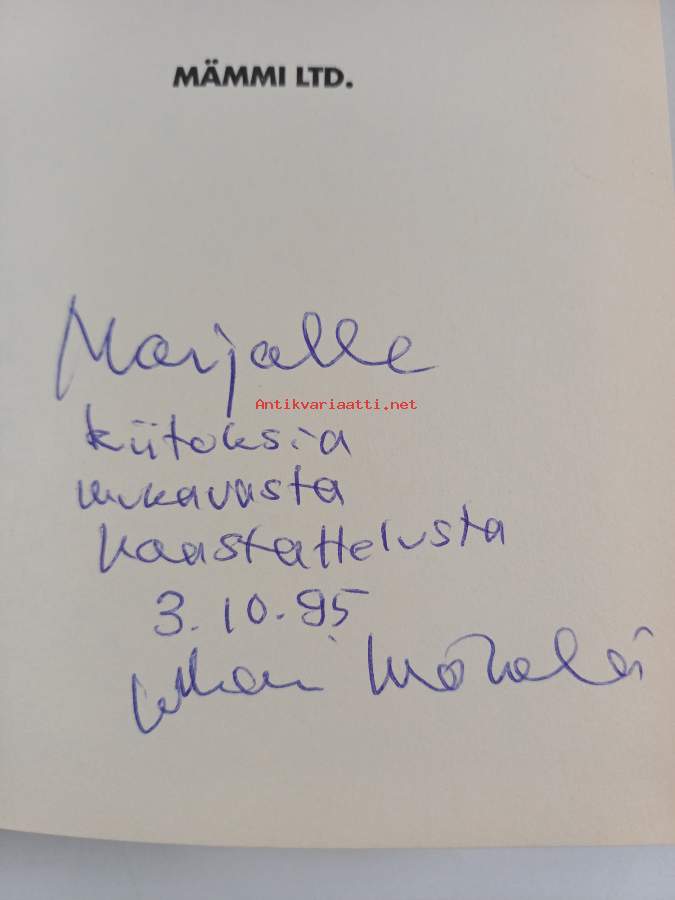 MÄMMI LTD.
Marjalle
Antikvariaatti.net
kiitoksia
mukavasta
haastattelusta
3.10.95
Juhani Mäkelä